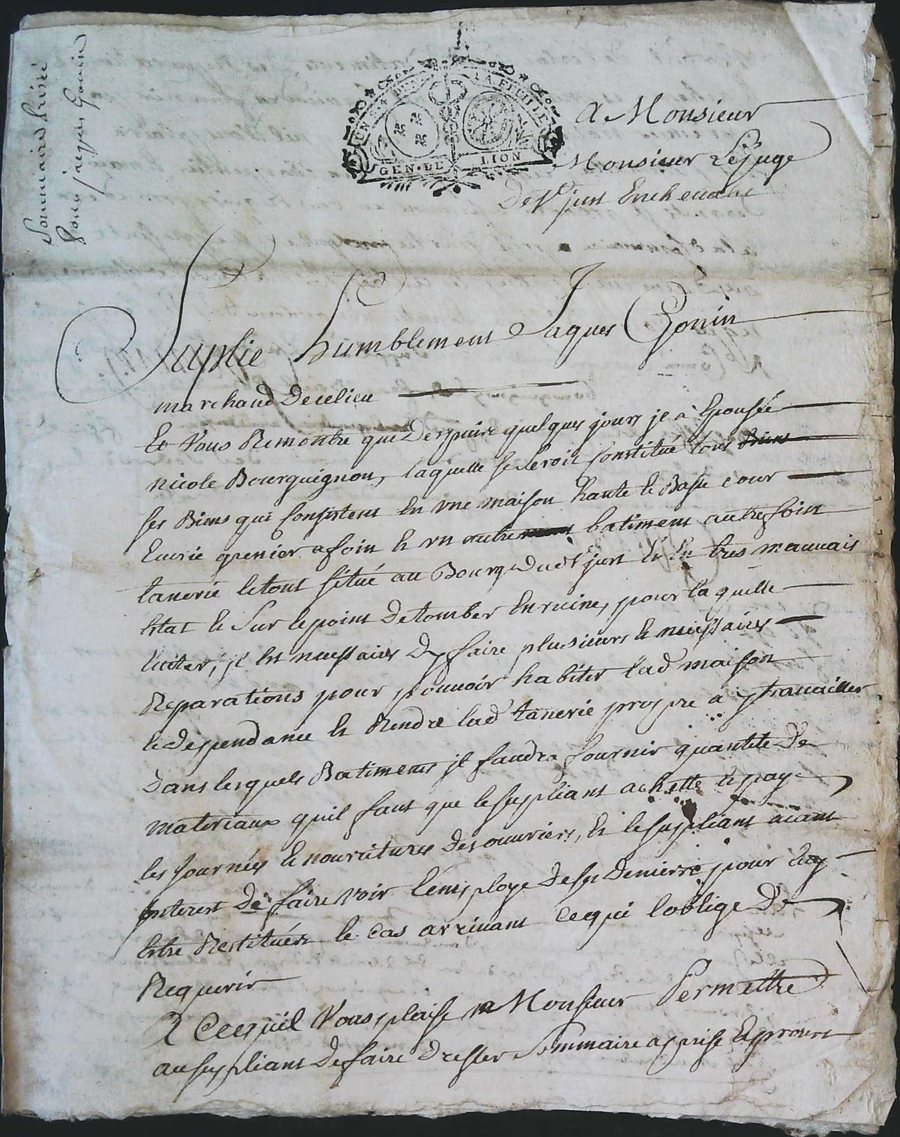 Sommaire
pour jacques Gonin
EN. S. 4 D. LA FEUILLE
GEN. DE LION
A Monsieur
Monsieur Lejuge
De St just Enchevalet
Suplie humblement Jaques Gonin
marchand decelieu
Et vous Remontre que Despuis quelques jours jl à Epousée
nicole Bourguignon, laquelle se seroit Constitué tous
ses Biens qui Consistent En vne maison haute & Basse cour
Ecurie grenier afoin & vn autre batiment autrefoint
tanerie letout situé au Bourg dud St just & En tres mauvais
Etat & sur lepoint detomber En ruine, pour laquelle
jl Est necessaires De faire plusieurs & necessaires
Reparations pour pouvoir habiter lad maison
& dependance & Rendre lad tanerie propre à y travailler
Dans lesquels Batiments jl faudra fournir quantité de
materiaux quil faut que lesupliant achette & pay
les journés & nourritures des ouvriers, & lesupliant aiant
jnterest de faire voir l'employe deses deniers pour En
Etre Restituér le cas arrivant Cequi loblige De
Requerir
A Cequil Vous plaise Monsieur Permettre
au supliant defaire dresser Sommaire aprise